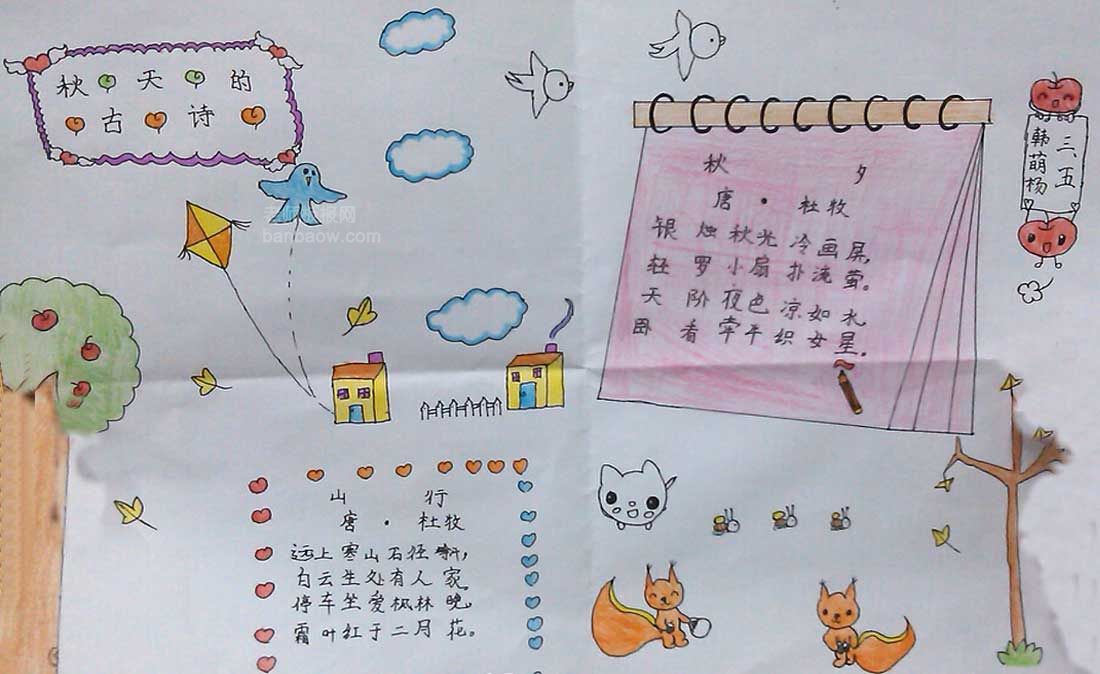 秋天的
古诗
banbaow.com
秋夕
唐·杜牧
银烛秋光冷画屏,
轻罗小扇扑流萤。
天阶夜色凉如水,
卧看牵牛织女星。
三、五
韩萌杨
山行
唐·杜牧
远上寒山石径斜,
白云生处有人家,
停车坐爱枫林晚,
霜叶红于二月花。